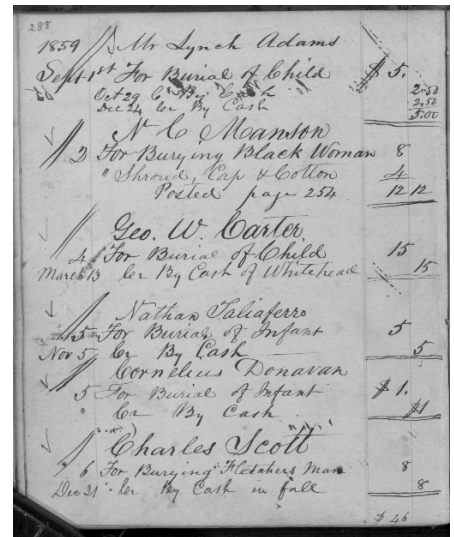 288
1859 Mr Lynch Adams
Sept 1st For Burial of Child $ 5.
Oct 29 Cr By Cash 2.50
Dec 24 Cr By Cash 2.50
5.00
N C Manson
2 For Burying Black Woman 8
" Shroud, Cap & Cotton 4
Posted page 254 12 12
Geo. W. Carter
4 For Burial of Child 15
March 13 Cr By Cash of Whitehead 15
Nathan Taliaferro
5 For Burial of Infant 5
Nov 5 Cr By Cash 5
Cornelius Donavan
5 For Burial of Infant $ 1.
" Cr By Cash $1
Charles Scott
6 For Burying Fletchers Man 8
Dec 31 Cr By Cash in full 8
$ 46